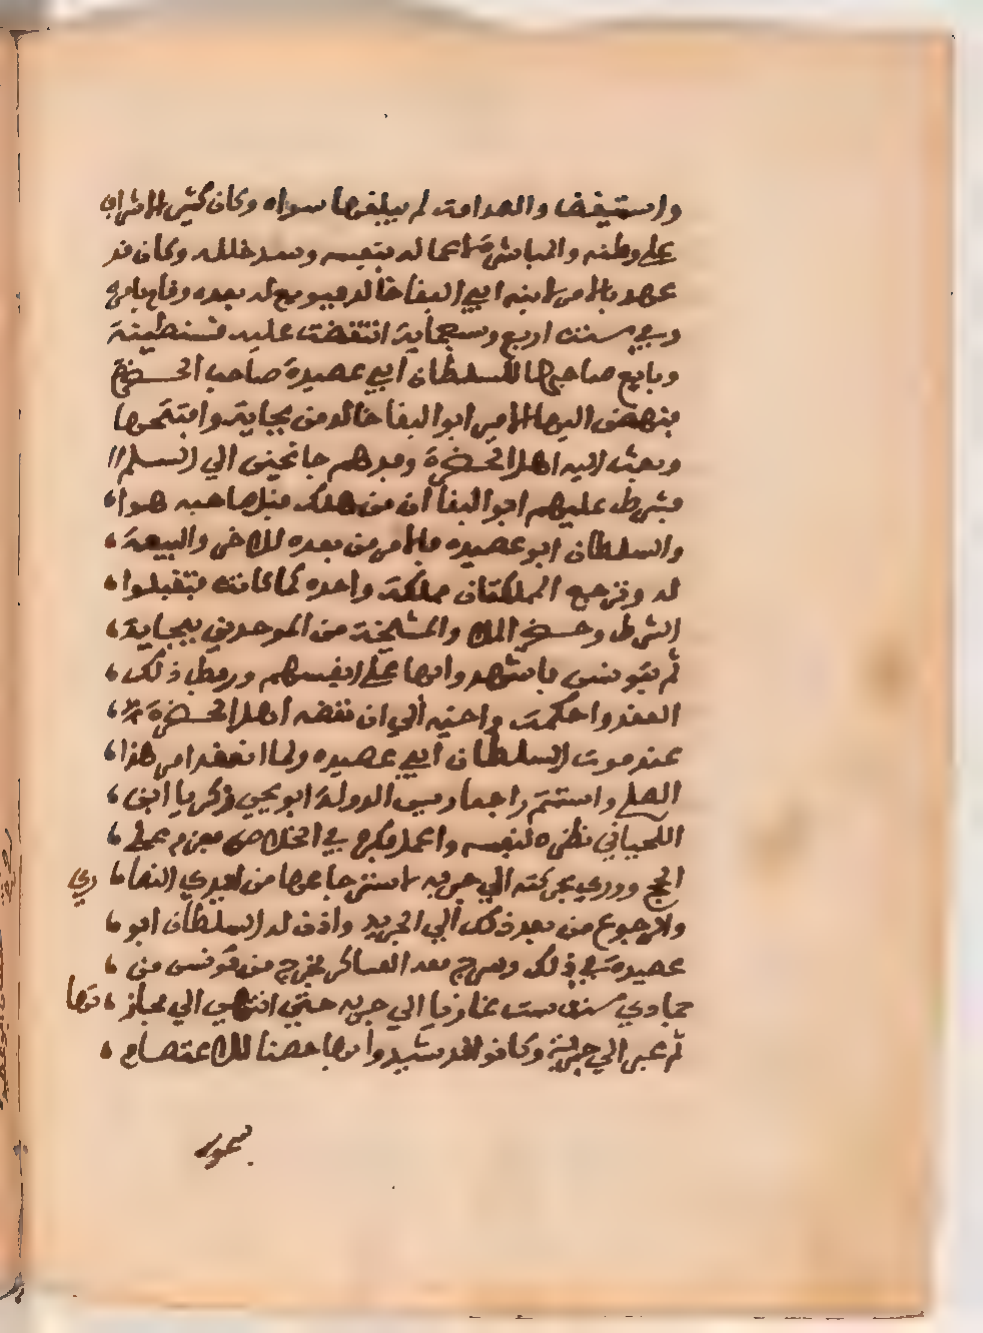 واستيقظ والصرامة لم يبلغها سواه وكان كثير الاشراف
على وطنه والمباشرة لاعماله بنفسه وسد خلله وكان قد
عهد بالامر لابنه ابي البقا خالد فبويع له بعده وقام بامره
وفي سنت اربع وسبعماية انتقضت عليه قسنطينة
وبايع صاحبها للسلطان ابي عصيدة صاحب الحضرة
فنهض اليها الامير ابو البقا خالد من بجاية وافتتحها
وبعث اليه اهل الحضرة وفدهم جانحين الي السلم
فشرط عليهم ابو البقا ان من هلك قبل صاحبه هوا
والسلطان ابو عصيده فالامر من بعده للاخر والبيعة
له وترجع المملكتان مملكة واحده كما كانت فتقبلوا
الشرط وحضر الملا والمشيخة من الموحدين ببجاية
ثم بتونس فاشهدوا بها على انفسهم وربط ذلك
العقد واحكمت واخيه الي ان نقضه اهل الحضرة
عند موت السلطان ابي عصيده ولما انعقد امر هذا
الصلح واستتم راجعا رييس الدولة ابو يحيي زكريا ابن
اللحياني نظره لنفسه واعمل فكره في الخلاص فعزم علي
الحج ووري بحركته الي جربه لاسترجاعها من ايدي النصا ري
والرجوع من بعد ذلك الي الجريد واذن له السلطان ابو
عصيده في ذلك وسرح معه العساكر فخرج من تونس من
جمادي سنة ست غازيا الي جربه حتي انتهي الي مجاز تها
ثم عبر الي جربة وكانوا قد شيدوا بها حصنا للاعتصام